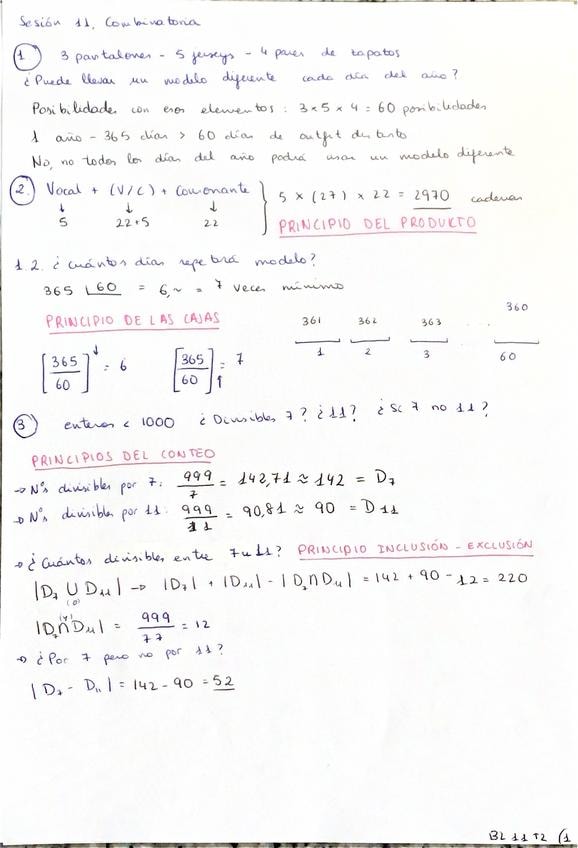 Sesión 11, Combinatoria
1 3 pantalones - 5 jerseys - 4 pares de zapatos
¿Puede llevar un modelo diferente cada día del año?
Posibilidades con esos elementos: 3 x 5 x 4 = 60 posibilidades
1 año - 365 días > 60 días de outfit distinto
No, no todos los días del año podrá usar un modelo diferente
2. Vocal + (V/C) + Consonante } 5 x (27) x 22 = 2970 cadenas
↓ ↓ ↓
5 22+5 22 PRINCIPIO DEL PRODUKTO
1.2. ¿Cuántos días repetirá modelo?
365 60 = 6,~ = 7 veces mínimo
PRINCIPIO DE LAS CAJAS 361 362 363 ... 360
1 2 3 60
[365/60]↓ = 6 [365/60]↑ = 7
3 enteros < 1000 ¿Divisibles 7? ¿11? ¿Sí 7 no 11?
PRINCIPIOS DEL CONTEO
→ Nºs divisibles por 7: 999/7 = 142,71 ≈ 142 = D7
→ Nºs divisibles por 11: 999/11 = 90,81 ≈ 90 = D11
→ ¿Cuántos divisibles entre 7 u 11? PRINCIPIO INCLUSIÓN - EXCLUSIÓN
|D7 ∪ D11| → |D7| + |D11| - |D7 ∩ D11| = 142 + 90 - 12 = 220
(o)
(y)
|D7 ∩ D11| = 999/77 = 12
→ ¿Por 7 pero no por 11?
|D7 - D11| = 142 - 90 = 52
BL 11 T2 (1